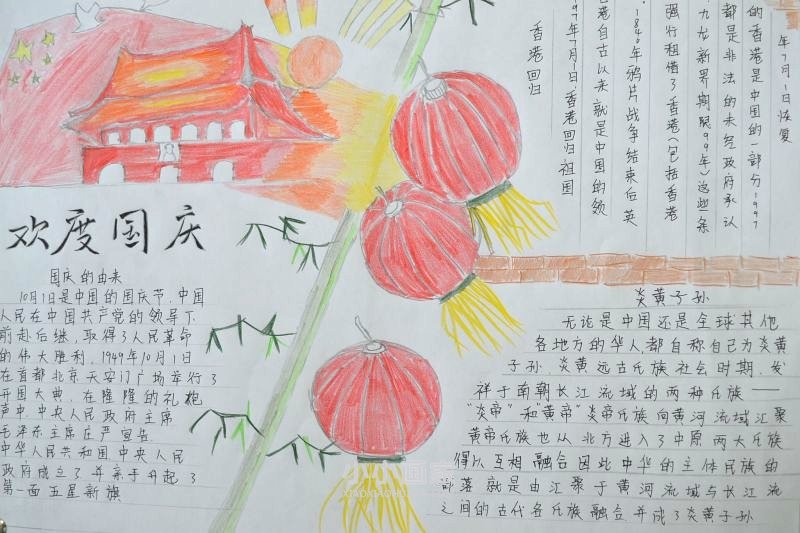 欢度国庆
国庆的由来
10月1日是中国的国庆节,中国
人民在中国共产党的领导下
前赴后继,取得了人民革命
的伟大胜利,1949年10月1日
在首都北京天安门广场举行了
开国大典,在隆隆的礼炮
声中,中央人民政府主席
毛泽东主席庄严宣告
中华人民共和国中央人民
政府成立了并亲手升起了
第一面五星新旗
香港回归
97年7月1日香港回归祖国
港自古以来就是中国的领
1840年鸦片战争结束后英
强行租借了香港(包括香港
九龙新界期限99年)这些条
都是非法的未经政府承认
的香港是中国的一部分1997
年7月1日恢复
炎黄子孙
无论是中国还是全球其他
各地方的华人,都自称自己为炎黄
子孙.炎黄远古氏族社会时期,发
祥于南朝长江流域的两种氏族——
“炎帝”和黄帝“炎帝氏族向黄河流域汇聚
黄帝氏族也从北方进入了中原两大氏族
得以互相融合因此中华的主体民族的
部落就是由汇聚于黄河流域与长江流
之间的古代各氏族融合并成了炎黄子孙
小小画家